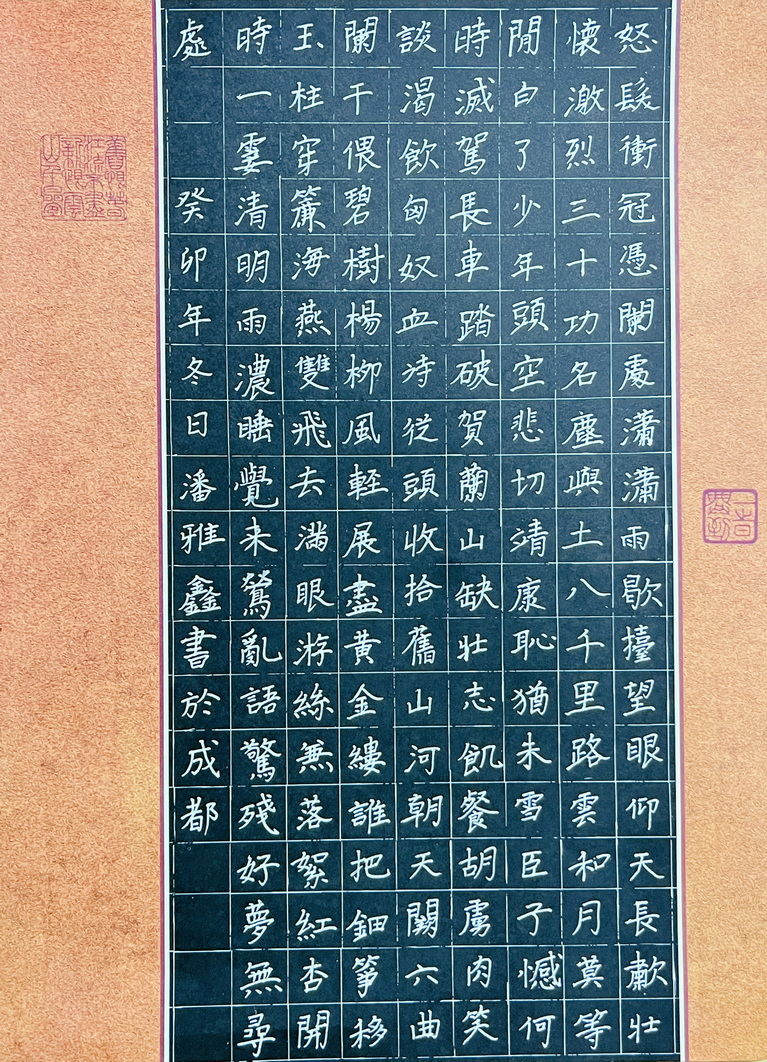 怒髮衝冠憑闌處瀟瀟雨歇擡望眼仰天長歗壯
懷激烈三十功名塵與土八千里路雲和月莫等
閒白了少年頭空悲切靖康恥猶未雪臣子憾何
時滅駕長車踏破賀蘭山缺壯志飢餐胡虜肉笑
談渴飲匈奴血待從頭收拾舊山河朝天闕六曲
闌干偎碧樹楊柳風輕展盡黄金縷誰把鈿箏移
玉柱穿簾海燕雙飛去滿眼游絲兼落絮紅杏開
時一霎清明雨濃睡覺来鶯亂語驚殘好夢無尋
處 癸卯年冬日潘雅鑫書於成都